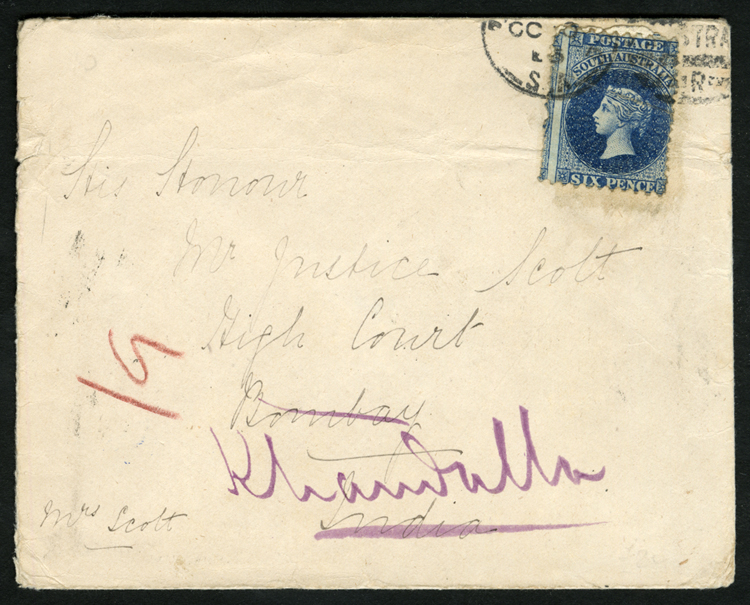 POSTAGE
SOUTH AUSTRALIA
SIX PENCE
His Honour
Mr Justice Scott
High Court
Bombay
Khandalla
India
Mrs Scott